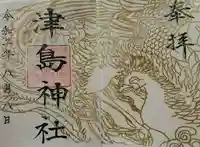 奉拝
津島神社
令和六年八月八日